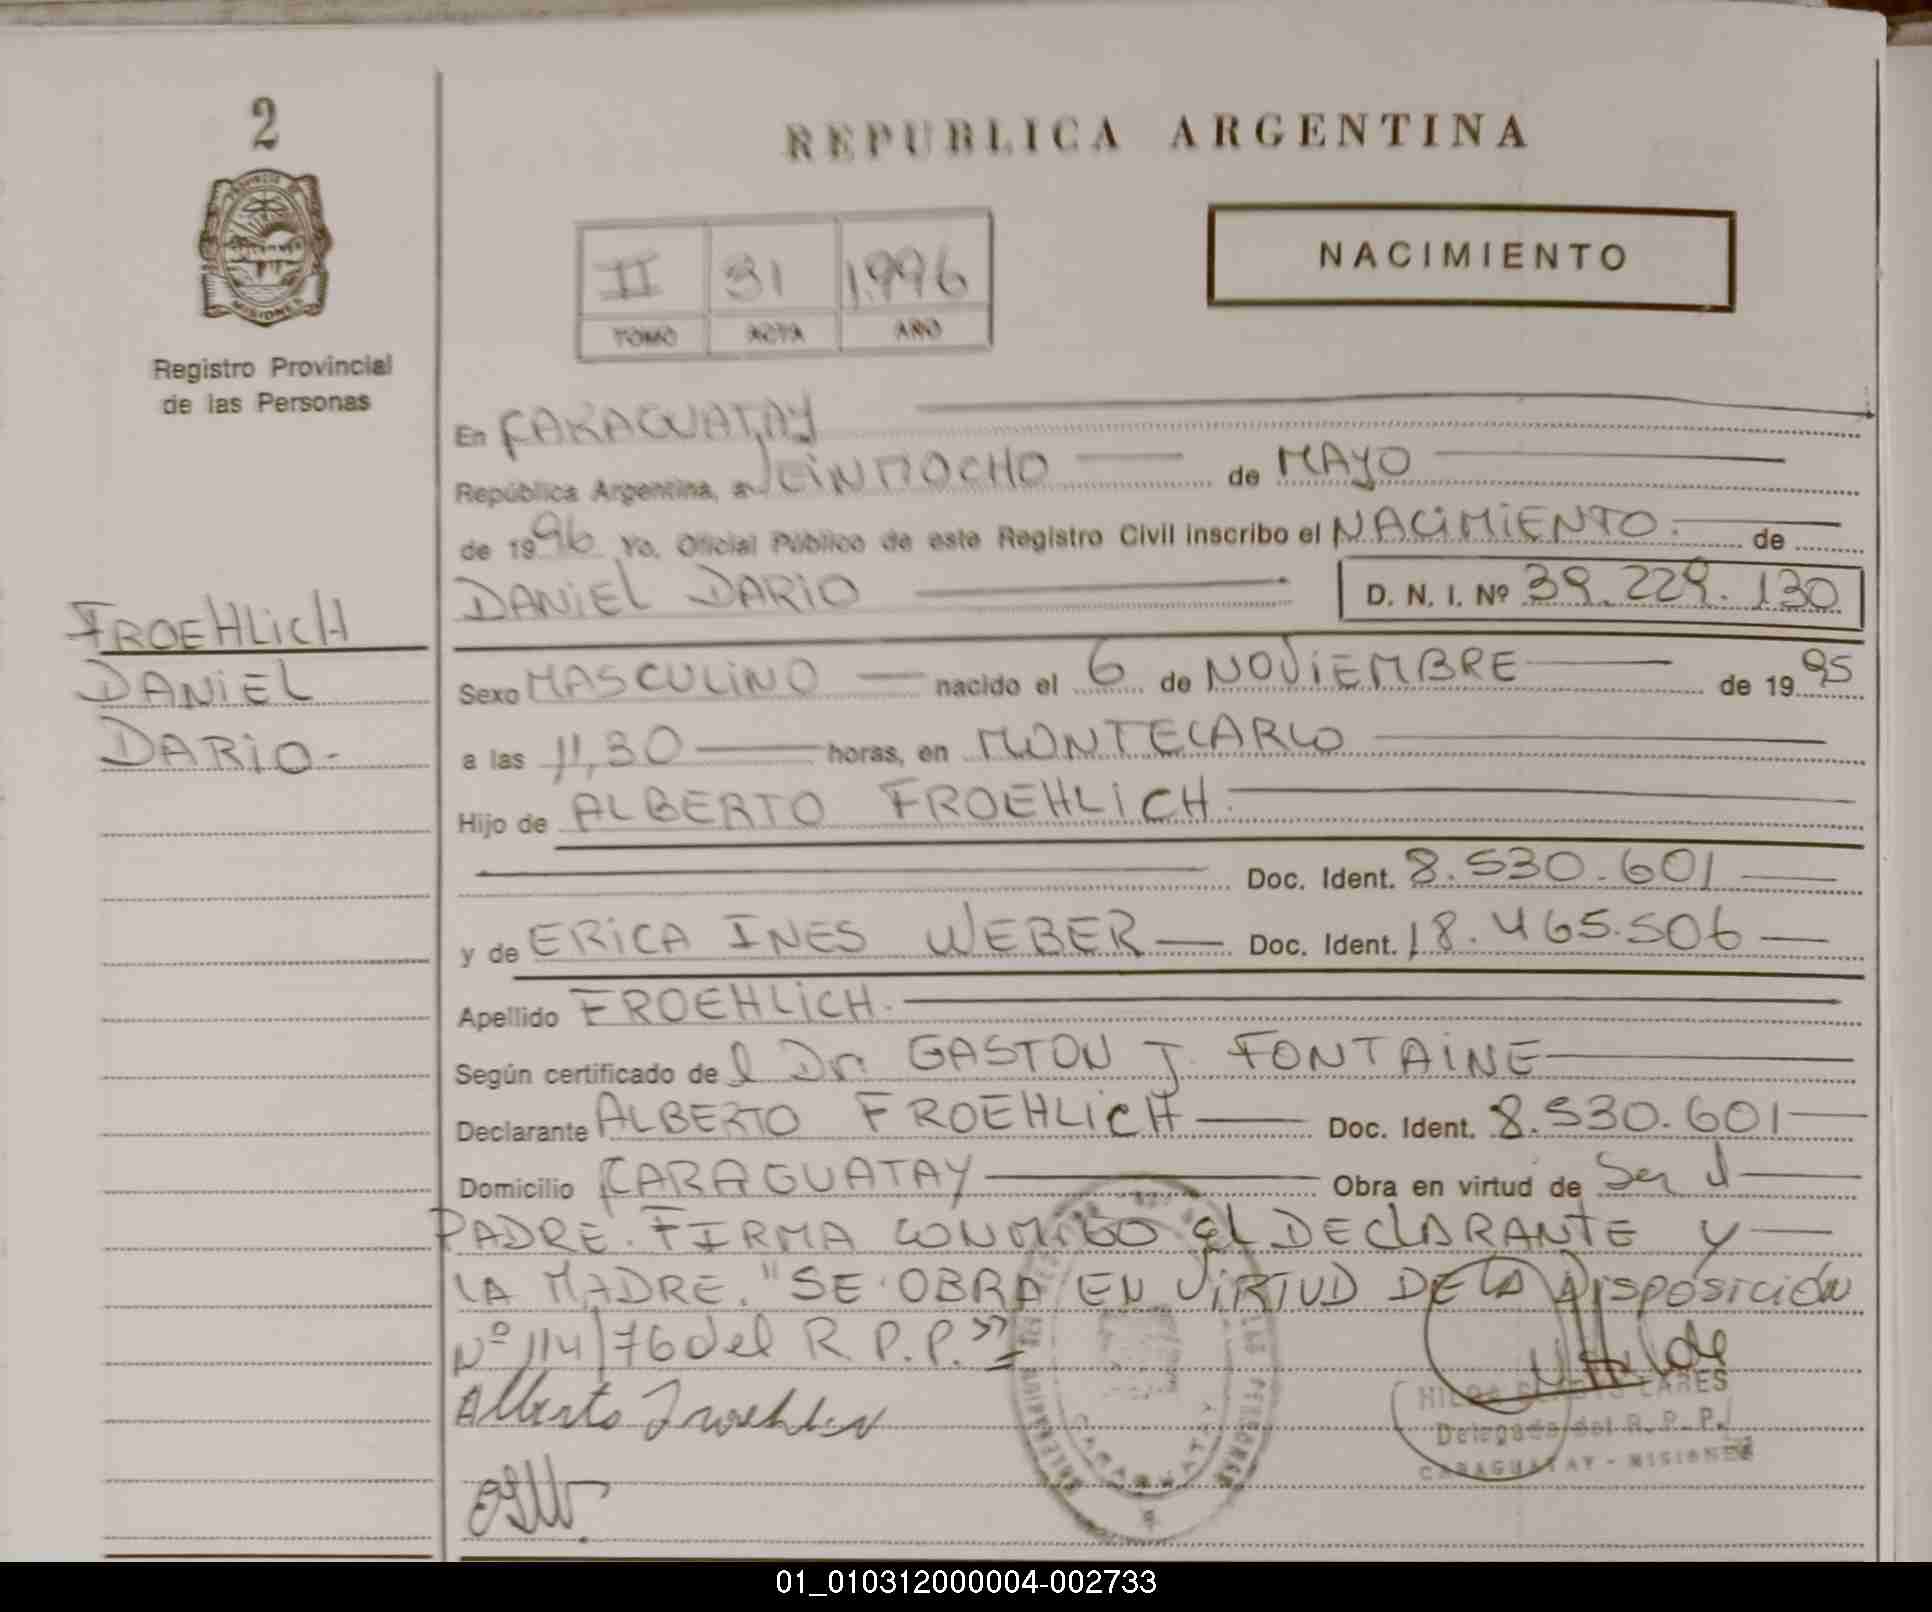 2
REPUBLICA ARGENTINA
PROVINCIA DE
MISIONES
Registro Provincial
de las Personas
II 31 1.996
TOMO ACTA AÑO
NACIMIENTO
En CARAGUATAY
República Argentina, a VEINTIOCHO de MAYO
de 1996 Yo, Oficial Público de este Registro Civil inscribo el NACIMIENTO. de
DANIEL DARIO D. N. I. Nº 39.229.130
FROEHLICH
DANIEL
DARIO-
Sexo MASCULINO nacido el 6 de NOVIEMBRE de 1995
a las 11,30 horas, en MONTECARLO
Hijo de ALBERTO FROEHLICH.
Doc. Ident. 8.530.601
y de ERICA INES WEBER Doc. Ident. 18.465.506
Apellido FROEHLICH.
Según certificado del Dr. GASTON J. FONTAINE
Declarante ALBERTO FROEHLICH Doc. Ident. 8.530.601
Domicilio CARAGUATAY Obra en virtud de Ser el
PADRE. FIRMA CONMIGO el DECLARANTE y
LA MADRE. "SE OBRA EN VIRTUD DE LA DISPOSICIÓN
Nº 114/76 del R.P.P."=
Alberto Froehlich
HILDA CARES
Delegada del R.P.P.
CARAGUATAY - MISIONES
CARAGUATAY
01_010312000004-002733